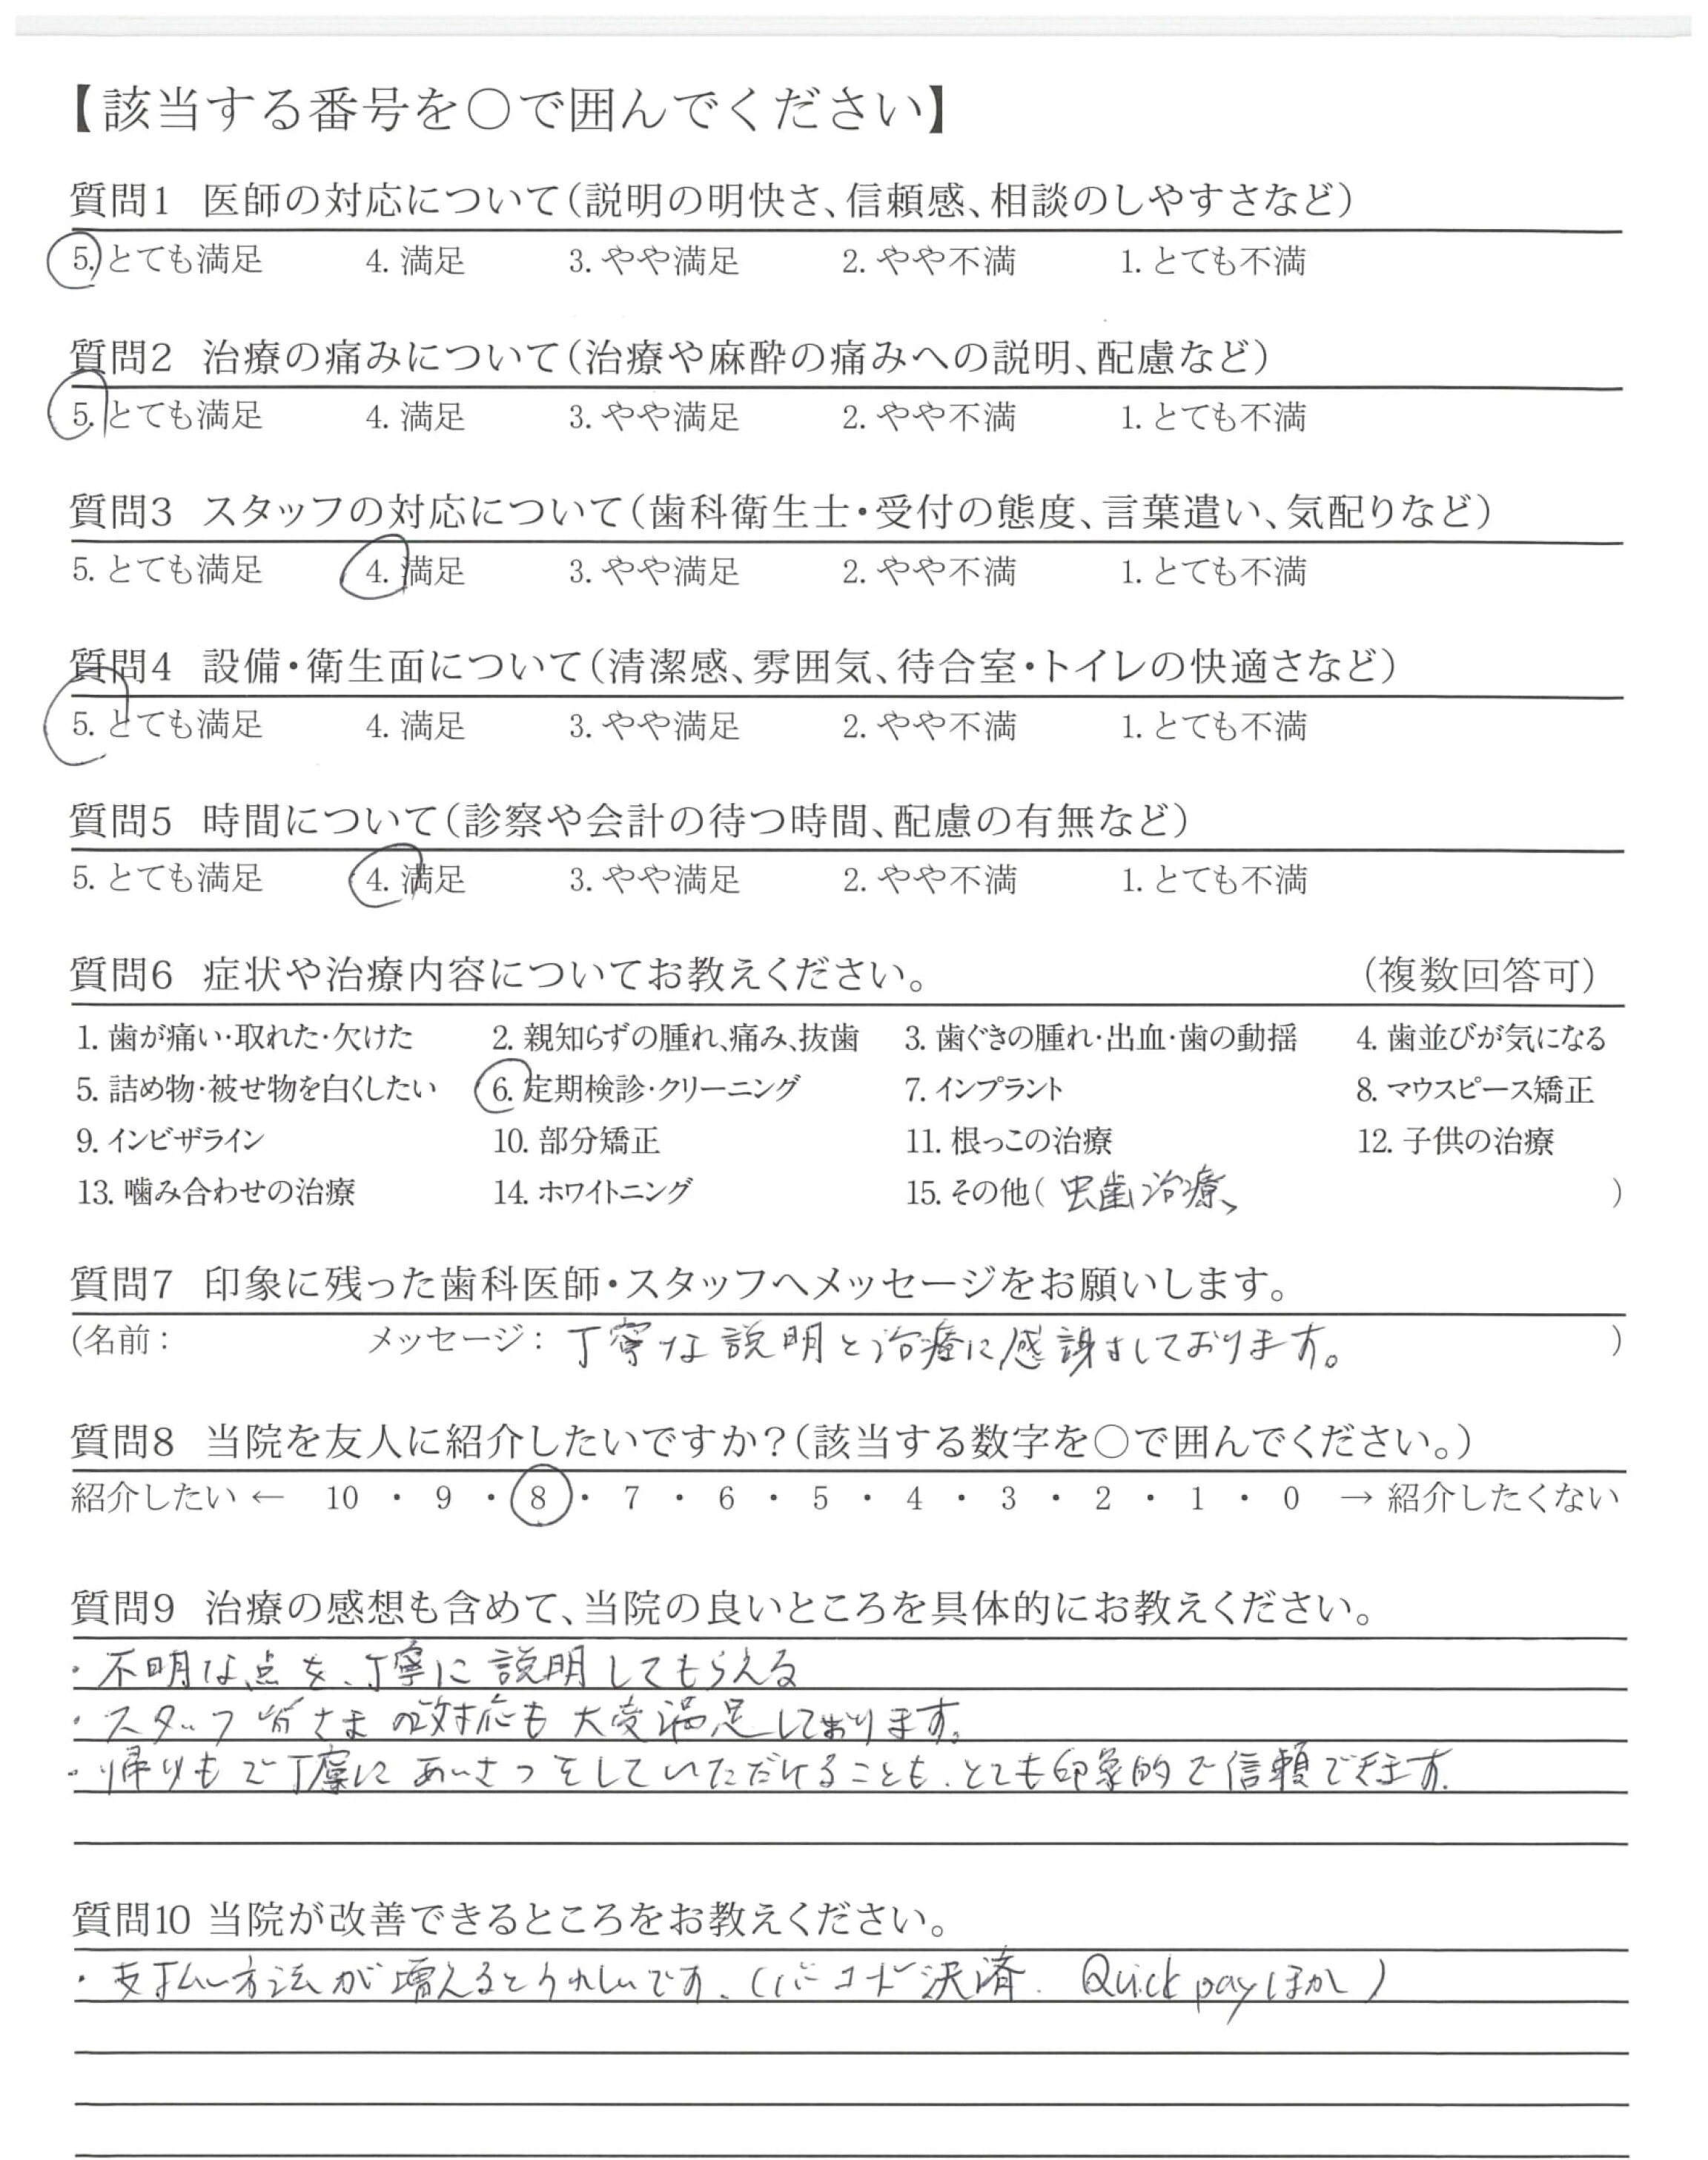 【該当する番号を○で囲んでください】
質問1 医師の対応について(説明の明快さ、信頼感、相談のしやすさなど)
5. とても満足 4. 満足 3. やや満足 2. やや不満 1. とても不満
質問2 治療の痛みについて(治療や麻酔の痛みへの説明、配慮など)
5. とても満足 4. 満足 3. やや満足 2. やや不満 1. とても不満
質問3 スタッフの対応について(歯科衛生士・受付の態度、言葉遣い、気配りなど)
5. とても満足 4. 満足 3. やや満足 2. やや不満 1. とても不満
質問4 設備・衛生面について(清潔感、雰囲気、待合室・トイレの快適さなど)
5. とても満足 4. 満足 3. やや満足 2. やや不満 1. とても不満
質問5 時間について(診察や会計の待つ時間、配慮の有無など)
5. とても満足 4. 満足 3. やや満足 2. やや不満 1. とても不満
質問6 症状や治療内容についてお教えください。 (複数回答可)
1. 歯が痛い・取れた・欠けた 2. 親知らずの腫れ、痛み、抜歯 3. 歯ぐきの腫れ・出血・歯の動揺 4. 歯並びが気になる
5. 詰め物・被せ物を白くしたい 6. 定期検診・クリーニング 7. インプラント 8. マウスピース矯正
9. インビザライン 10. 部分矯正 11. 根っこの治療 12. 子供の治療
13. 噛み合わせの治療 14. ホワイトニング 15. その他( 虫歯治療、 )
質問7 印象に残った歯科医師・スタッフへメッセージをお願いします。
(名前: メッセージ: 丁寧な説明と治療に感謝しております。 )
質問8 当院を友人に紹介したいですか?(該当する数字を○で囲んでください。)
紹介したい ← 10 ・ 9 ・ 8 ・ 7 ・ 6 ・ 5 ・ 4 ・ 3 ・ 2 ・ 1 ・ 0 → 紹介したくない
質問9 治療の感想も含めて、当院の良いところを具体的にお教えください。
・不明な点を、丁寧に説明してもらえる
・スタッフ皆さまの対応も大変満足しております。
・帰りもご丁寧にあいさつをしていただけることも、とても印象的で信頼できます。
質問10 当院が改善できるところをお教えください。
・支払い方法が増えるとうれしいです。(バーコード決済、Quick payほか)